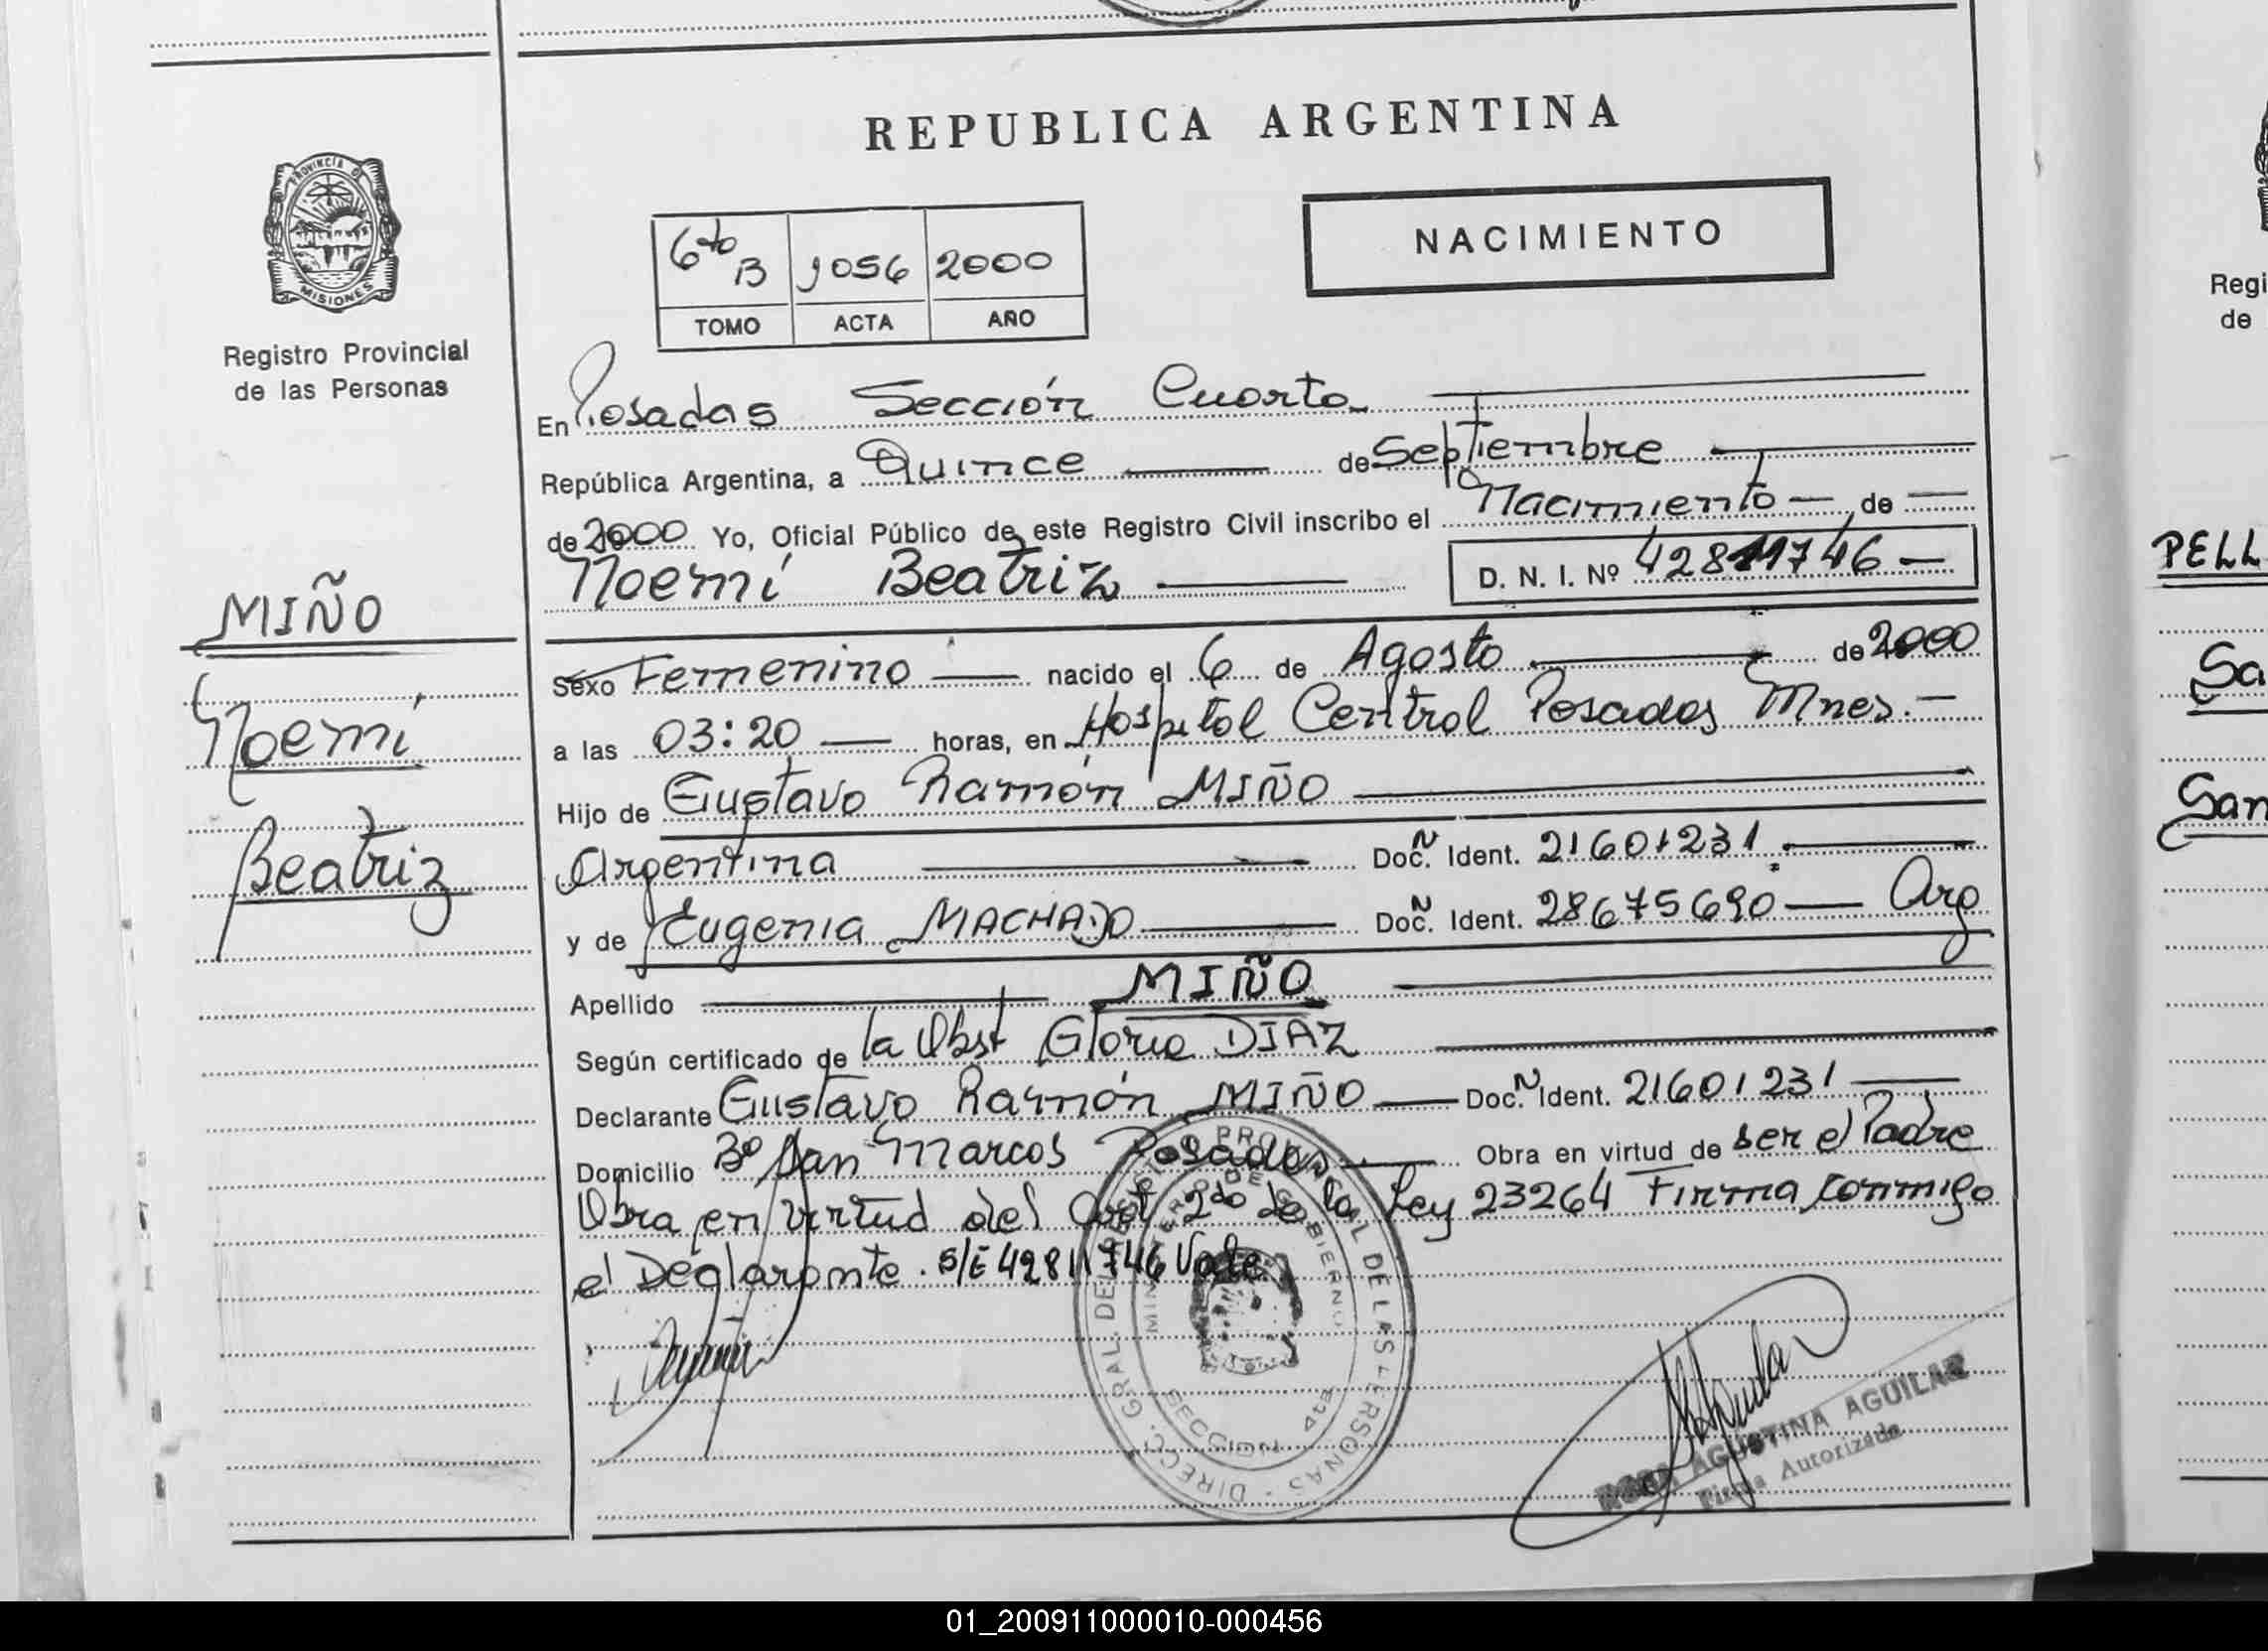 REPUBLICA ARGENTINA
NACIMIENTO
6to B 1056 2000
TOMO ACTA AÑO
PROVINCIA DE
MISIONES
Registro Provincial
de las Personas
MIÑO
Noemí
Beatriz
En Posadas Sección Cuarta
República Argentina, a Quince de Septiembre
de 2000 Yo, Oficial Público de este Registro Civil inscribo el Nacimiento de
Noemí Beatriz D. N. I. Nº 42811746
Sexo Femenino nacido el 6 de Agosto de 2000
a las 03:20 horas, en Hospital Central Posadas Mnes.
Hijo de Gustavo Ramón MIÑO
Argentina Doc. N Ident. 21601231
y de Eugenia MACHADO Doc. N Ident. 28675690 Arg
Apellido MIÑO
Según certificado de la Obst Gloria DIAZ
Declarante Gustavo Ramón MIÑO Doc. N Ident. 21601231
Domicilio Bº San Marcos Posadas Obra en virtud de ser el Padre
Obra en virtud del Art 2do de la Ley 23264 Firma conmigo
el Declarante. S/E 42811746 Vale
DIRECC. GRAL. DEL REGISTRO PROVINCIAL DE LAS PERSONAS
MINISTERIO DE GOBIERNO
SECCION 4ta
ROSA AGUSTINA AGUILAR
Firma Autorizada
Regi
de
PELL
Sa
San
01_200911000010-000456